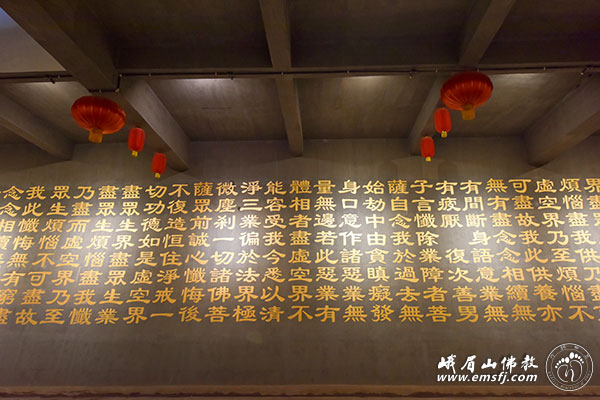 界盡眾生業盡眾生
煩惱盡我供乃盡而
虛空界乃至煩惱不
可盡故我此供養亦
無有盡念念相續無
有間斷身語意業無
有疲厭 復次善男
子言懺除業障者菩
薩自念我於過去無
始劫中由貪瞋癡發
身口意作諸惡業無
量無邊若此惡業有
體相者盡虛空界不
能容受我今悉以清
淨三業徧於法界極
微塵剎一切諸佛菩
薩眾前誠心懺悔後
不復造恒住淨戒一
切功德如是虛空界
盡眾生界盡眾生業
盡眾生煩惱盡我懺
乃盡而虛空界乃至
眾生煩惱不可盡故
我此懺悔無有窮盡
念念相續無有
峨眉山佛教
www.emsfj.com